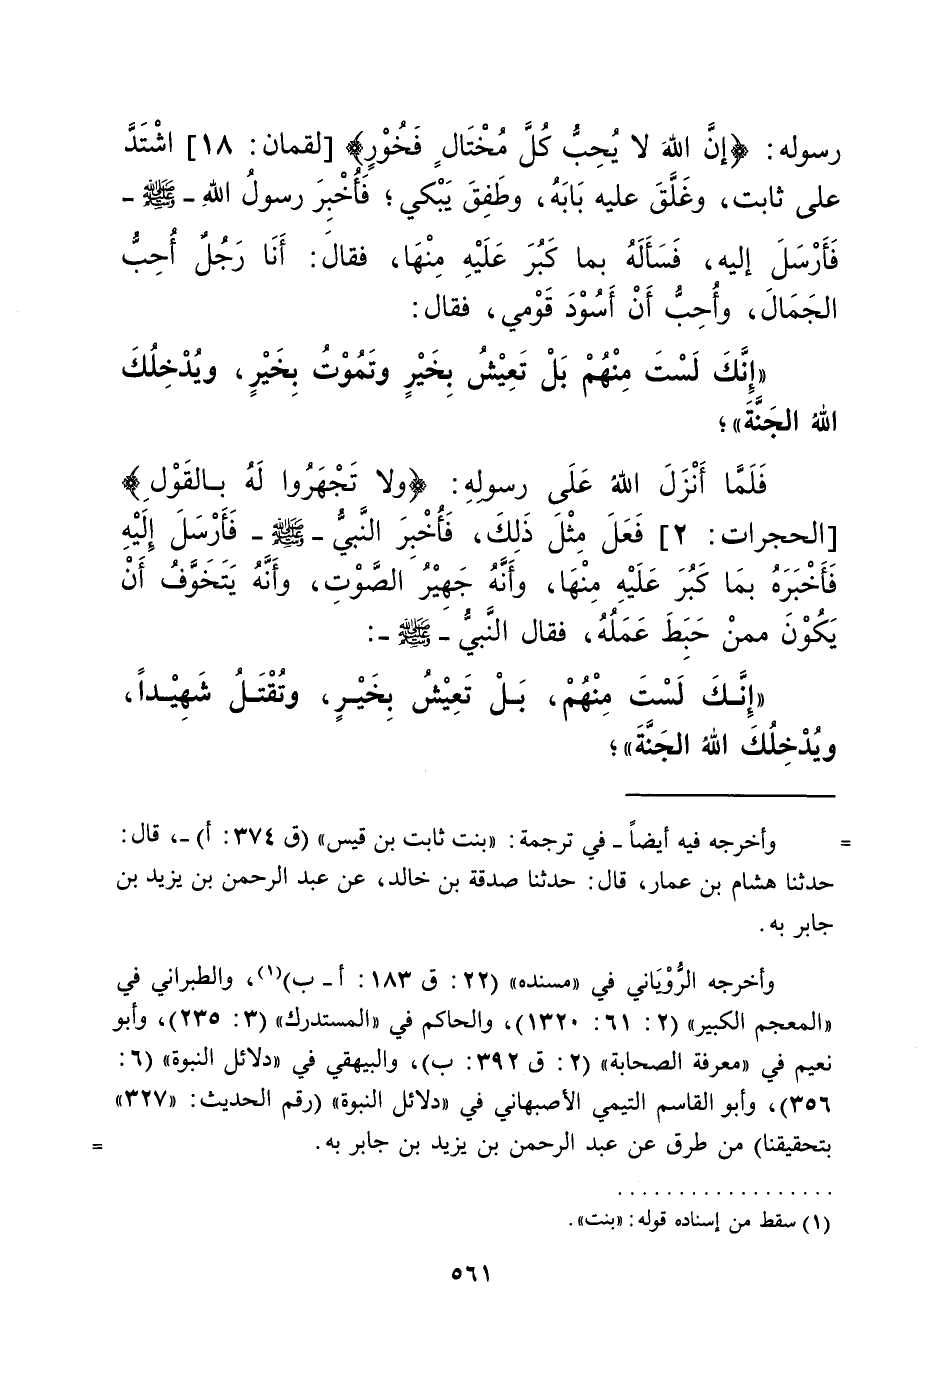 رسوله: ﴿إنَّ اللهَ لا يُحِبُّ كُلَّ مُخْتَالٍ فَخُوْرٍ﴾ [لقمان: ١٨] اشْتَدَّ
على ثابت، وغَلَّقَ عليه بَابَهُ، وطَفِقَ يَبْكي؛ فَأُخْبِرَ رسولُ اللهِ ـ ﷺ ـ
فَأَرْسَلَ إليه، فَسَأَلَهُ بما كَبُرَ عَلَيْهِ مِنْهَا، فقال: أَنَا رَجُلٌ أُحِبُّ
الجَمَالَ، وأُحِبُّ أَنْ أَسُوْدَ قَوْمي، فقال:
«إِنَّكَ لَسْتَ مِنْهُمْ بَلْ تَعِيْشُ بِخَيْرٍ وتَمُوْتُ بِخَيْرٍ، ويُدْخِلُكَ
اللهُ الجَنَّةَ»؛
فَلَمَّا أَنْزَلَ اللهُ عَلَى رسولِهِ: ﴿ولا تَجْهَرُوا لَهُ بـالقَوْلِ﴾
[الحجرات: ٢] فَعَلَ مِثْلَ ذَلِكَ، فَأُخْبِرَ النَّبيُّ ـ ﷺ ـ فَأَرْسَلَ إِلَيْهِ
فَأَخْبَرَهُ بمَا كَبُرَ عَلَيْهِ مِنْهَا، وأَنَّهُ جَهِيْرُ الصَّوْتِ، وأَنَّهُ يَتَخَوَّفُ أَنْ
يَكُوْنَ ممنْ حَبَطَ عَمَلُهُ، فقال النَّبيُّ ـ ﷺ ـ:
«إِنَّـكَ لَسْتَ مِنْهُمْ، بَـلْ تَعِيْشُ بِخَيْـرٍ، وتُقْتَـلُ شَهِيْـداً،
ويُدْخِلُكَ اللهُ الجَنَّةَ»؛
= وأخرجه فيه أيضاً ـ في ترجمة: «بنت ثابت بن قيس» (ق ٣٧٤: أ) ـ، قال:
حدثنا هشام بن عمار، قال: حدثنا صدقة بن خالد، عن عبد الرحمن بن يزيد بن
جابر به.
وأخرجه الرُّوْيَاني في «مسنده» (٢٢: ق ١٨٣: أ ـ ب)(١)، والطبراني في
«المعجم الكبير» (٢: ٦١: ١٣٢٠)، والحاكم في «المستدرك» (٣: ٢٣٥)، وأبو
نعيم في «معرفة الصحابة» (٢: ق ٣٩٢: ب)، والبيهقي في «دلائل النبوة» (٦:
٣٥٦)، وأبو القاسم التيمي الأصبهاني في «دلائل النبوة» (رقم الحديث: «٣٢٧»
بتحقيقنا) من طرق عن عبد الرحمن بن يزيد بن جابر به. =
..................
(١) سقط من إسناده قوله: «بنت».
٥٦١